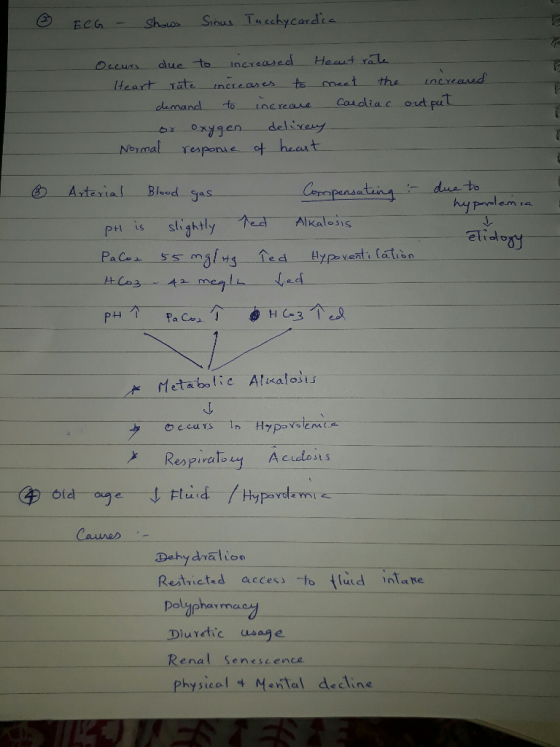 ② ECG - Shows Sinus Tacchycardia
Occurs due to increased Heart rate
Heart rate increases to meet the increased
demand to increase Cardiac output
or oxygen delivery
Normal response of heart
③ Arterial Blood gas Compensating :- due to
hypovolemia
↓
etiology
pH is slightly ↑ed Alkalosis
PaCo2 55 mg/Hg ↑ed Hypoventilation
HCo3 - 42 meq/L ↓ed
pH ↑ PaCo2 ↑ HCo3 ↑ed
* Metabolic Alkalosis
↓
* Occurs in Hypovolemia
* Respiratory Acidosis
④ Old age ↓ Fluid / Hypovolemia
Causes :-
Dehydration
Restricted access to fluid intake
Polypharmacy
Diuretic usage
Renal senescence
Physical + Mental decline